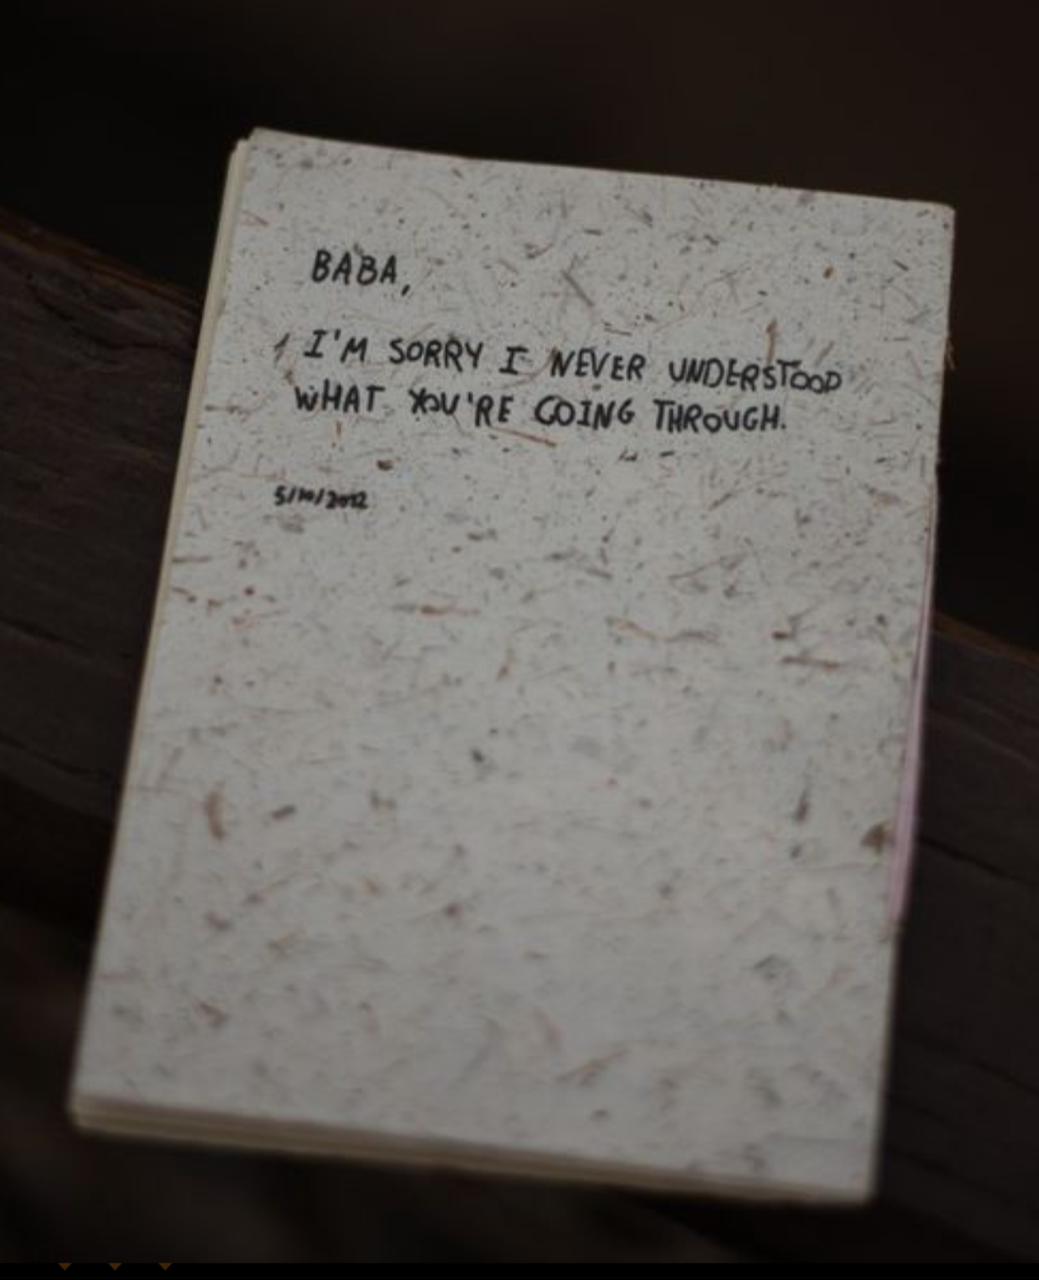 BABA,
I'M SORRY I NEVER UNDERSTOOD
WHAT YOU'RE GOING THROUGH.
5/10/2012